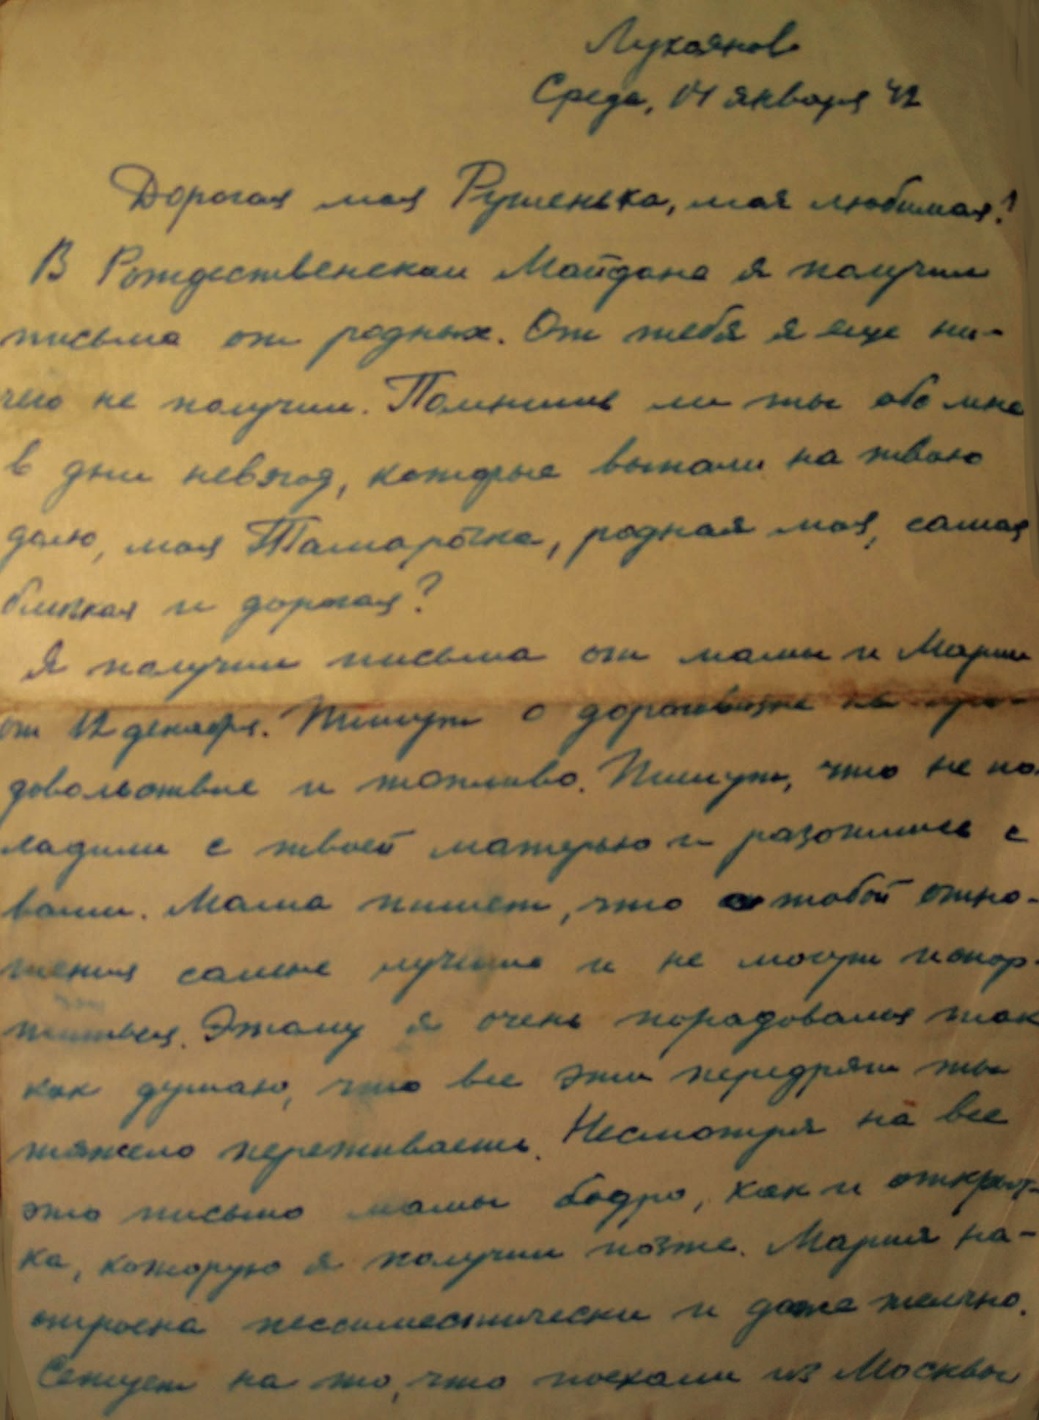 Лукоянов
Среда, 14 января 42
Дорогая моя Рушенька, моя любимая!
В Рождественском Майдане я получил
письма от родных. От тебя я еще ни-
чего не получил. Помнишь ли ты обо мне
в дни невзгод, которые выпали на твою
долю, моя Тамарочка, родная моя, самая
близкая и дорогая?
Я получил письма от мамы и Марии
от 12 декабря. Пишут о дороговизне на про-
довольствие и топливо. Пишут, что не по-
ладили с твоей матерью и разошлись с
вами. Мама пишет, что с тобой отно-
шения самые лучшие и не могут испор-
титься. Этому я очень порадовался так
как думаю, что все эти передряги ты
тяжело переживаешь. Несмотря на все
это письмо мамы бодро, как и открыт-
ка, которую я получил позже. Мария на-
строена пессимистически и даже желчно.
Сетует на то, что поехали из Москвы